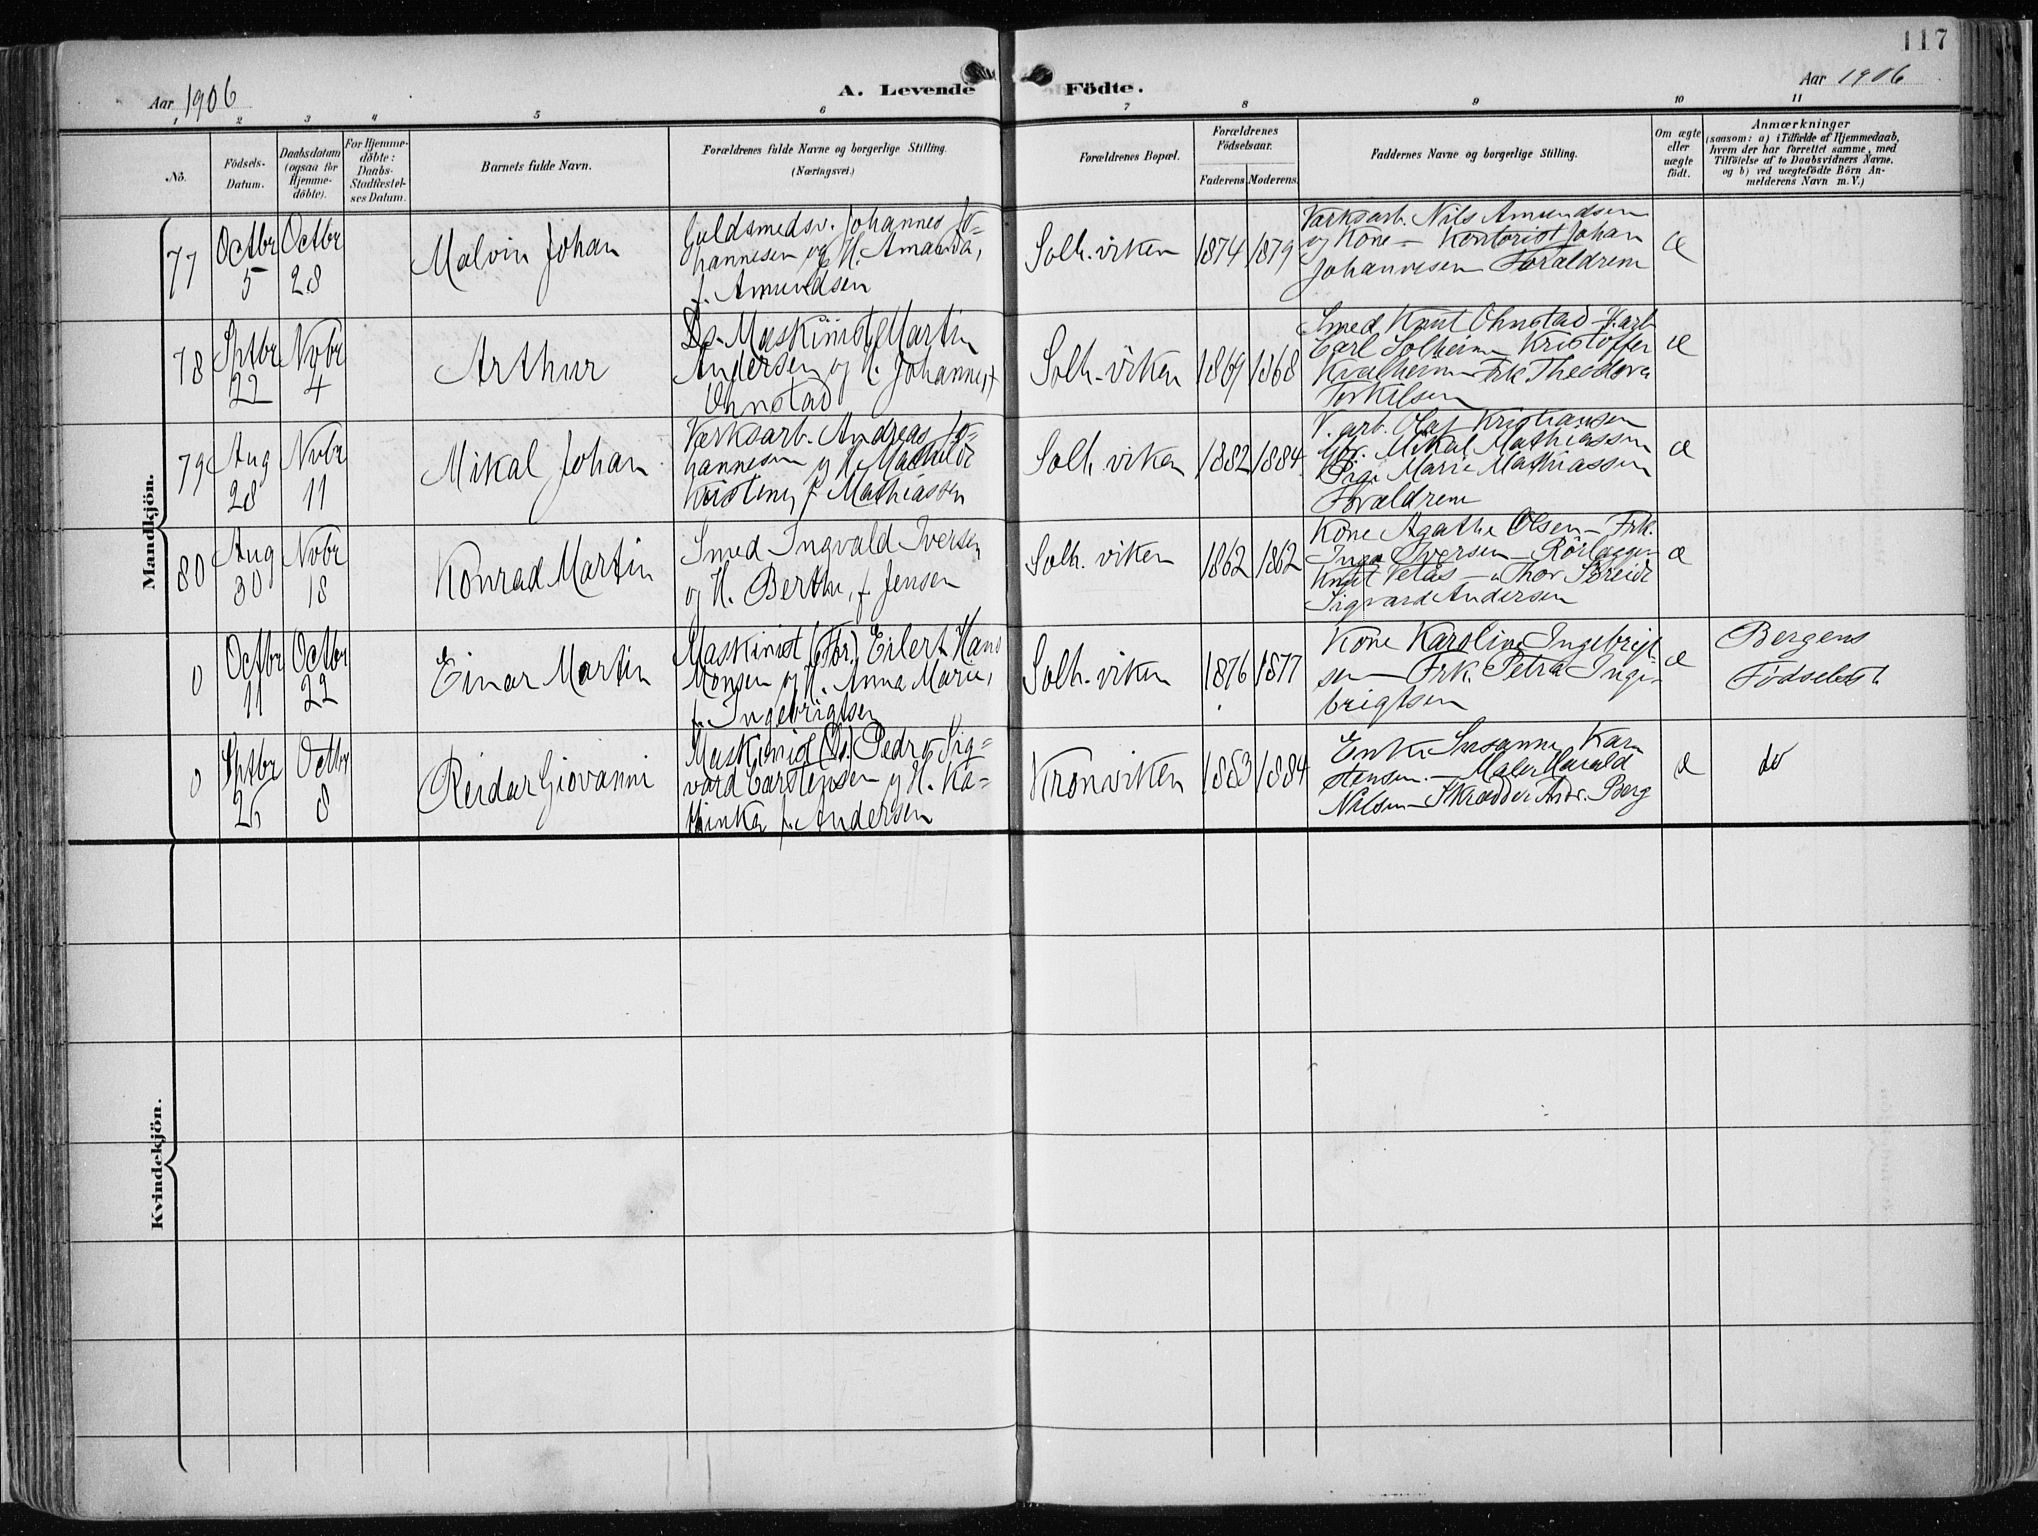 117
Aar 1906
A. Levende
Födte.
Aar 1906
1 2 3 4 5 6 7 8 9 10 11
No.
Födsels-
Datum.
Daabsdatum
(ogsaa for
Hjemme-
döbte).
For Hjemme-
döbte:
Daabs-
Stadfæstel-
ses Datum.
Barnets fulde Navn.
Forældrenes fulde Navne og borgerlige Stilling.
(Næringsvei.)
Forældrenes Bopæl.
Forældrenes
Födselsaar.
Faderens Moderens.
Faddernes Navne og borgerlige Stilling.
Om ægte
eller
uægte
födt.
Anmærkninger
(saasom: a) i Tilfælde af Hjemmedaab,
hvem der har forrettet samme, med
Tilföielse af to Daabsvidners Navne.
og b) ved uægtefödte Börn An-
melderens Navn m. V.)
Mandkjön.
77
Octbr
5
Octbr
28
Malvin Johan
Guldsmedsv. Johannes Jo=
hannesen og H. Amanda,
f. Amundsen
Solh.viken
1874
1879
Værksarb. Nils Amundsen
og Kone - Kontorist Johan
Johannesen Forældrene
æ
78
Sptbr
22
Nvbr
4
Arthur
Ds. Maskinist Martin
Andersen og H. Johanne, f
Ohnstad
Solh.viken
1869
1868
Smed Knut Ohnstad -
Carl Solheim Kristoffer
Kvalheim - Frk Theodora
Torkilsen
æ
79
Aug
28
Nvbr
11
Mikal Johan
Værksarb. Andreas Jo=
hannesen og H. Mathilde
Kristine, f. Mathiassen
Solh.viken
1882
1884
V.arb. Olaf Kristiansen
Mikal Mathiassen
Pige Marie Mathiassen
Forældrene
æ
80
Aug
30
Nvbr
18
Konrad Martin
Smed Ingvald Iversen
og H. Berthe, f. Jensen
Solh.viken
1862
1862
Kone Agathe Olsen - Frk.
Inga Iversen - Rörlægger
Knut - Thor
Sigvard Andersen
æ
0
Octbr
11
Octbr
22
Einar Martin
Maskinist (Fbr.) Eilert Hans
Monsen og H. Anna Marie,
f. Ingebrigtsen
Solh.viken
1876
1877
Kone Karoline Ingebrigt
sen - Frk. Petra Inge-
brigtsen
æ
Bergens
Födselsst.
0
Sptbr
26
Octbr
8
Reidar Giovanni
Maskinist (Ds.) Pedro Sig=
vard Carstensen og H. Ka=
thinka f. Andersen
Kronviken
1883
1884
Enke Susanne Kar
stensen. - Maler Harald
Nilsen - Skrædder Andr. Berg
æ
do
Kvindekjön.